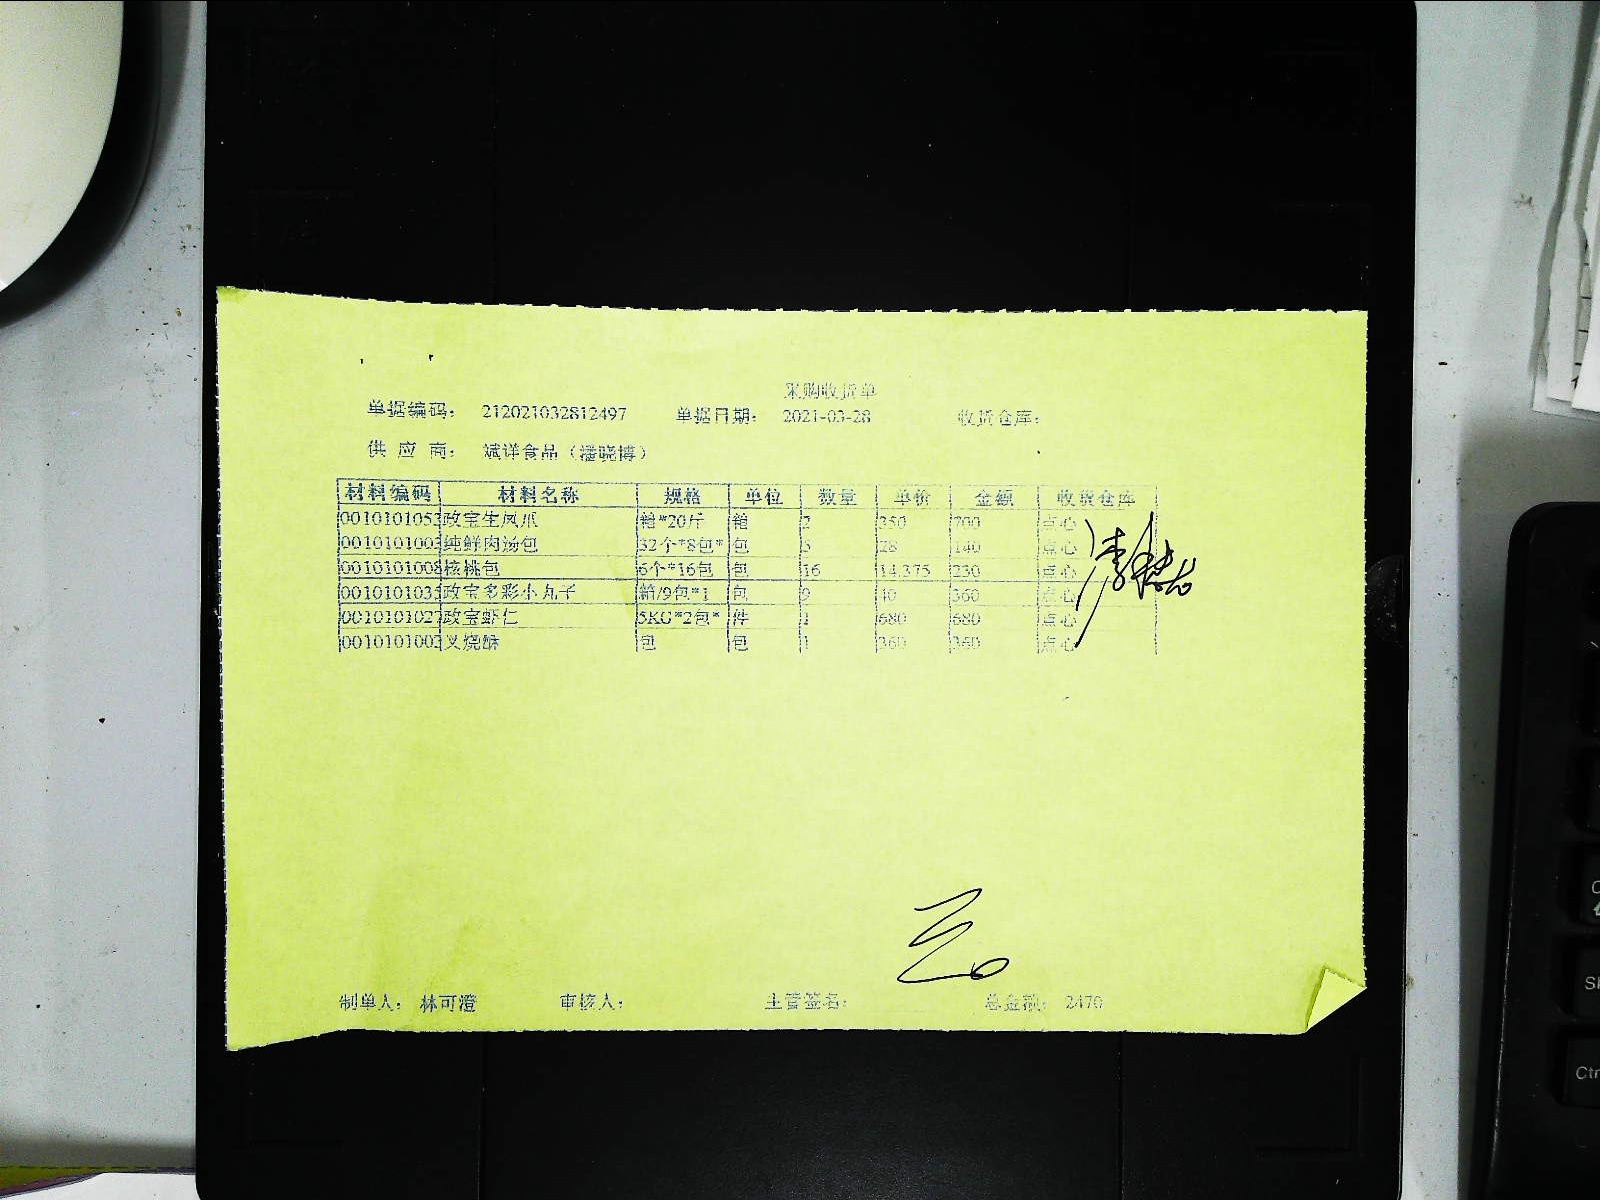 采购收货单
单据编码： 212021032812497 单据日期： 2021-03-28 收货仓库：
供 应 商： 斌洋食品（潘晓博）
材料编码 材料名称 规格 单位 数量 单价 金额 收货仓库
0010101053 政宝生凤爪 箱*20斤 箱 2 350 700 点心
0010101003 纯鲜肉汤包 32个*8包* 包 5 28 140 点心
0010101008 核桃包 6个*16包 包 16 14.375 230 点心
0010101035 政宝多彩小丸子 箱/9包*1 包 9 40 360 点心
0010101027 政宝虾仁 5KG*2包* 件 1 680 680 点心
0010101002 叉烧酥 包 包 1 360 360 点心
制单人： 林可澄 审核人： 主管签名： 总金额： 2470
Ctr